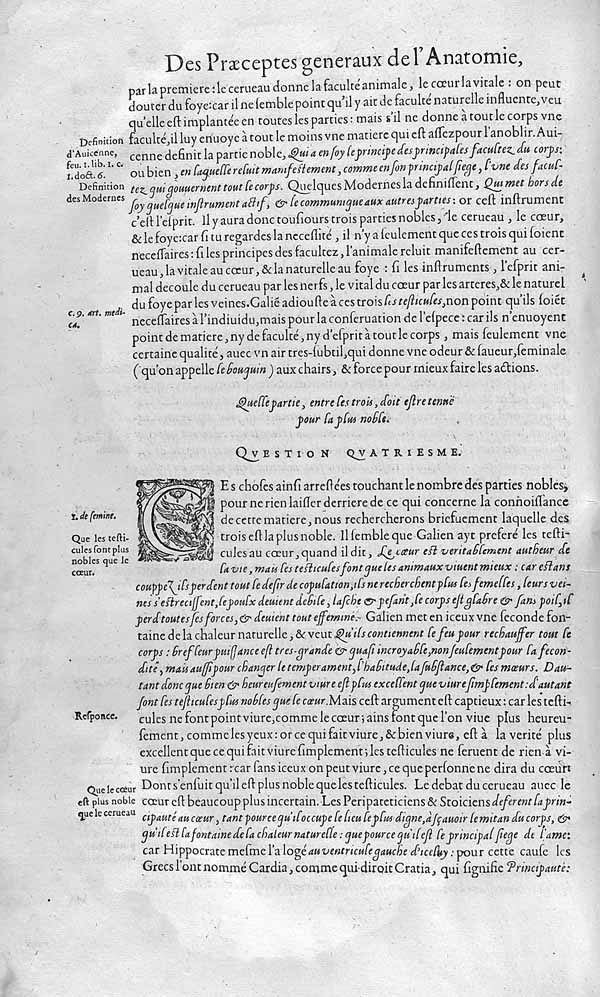 Des Præceptes generaux de l'Anatomie,
par la premiere: le cerueau donne la faculté animale, le cœur la vitale: on peut
douter du foye: car il ne semble point qu'il y ait de faculté naturelle influente, veu
qu'elle est implantée en toutes les parties: mais s'il ne donne à tout le corps vne
faculté, il luy enuoye à tout le moins vne matiere qui est assez pour l'anoblir. Aui-
cenne definit la partie noble, Qui a en soy le principe des principales facultez du corps:
ou bien, en laquelle reluit manifestement, comme en son principal siege, l'vne des facul-
tez qui gouuernent tout le corps. Quelques Modernes la definissent, Qui met hors de
soy quelque instrument actif, & le communique aux autres parties: or cest instrument
c'est l'esprit. Il y aura donc tousiours trois parties nobles, le cerueau, le cœur,
& le foye: car si tu regardes la necessité, il n'y a seulement que ces trois qui soient
necessaires: si les principes des facultez, l'animale reluit manifestement au cer-
ueau, la vitale au cœur, & la naturelle au foye: si les instruments, l'esprit ani-
mal decoule du cerueau par les nerfs, le vital du cœur par les arteres, & le naturel
du foye par les veines. Galié adiouste à ces trois les testicules, non point qu'ils soiët
necessaires à l'indiuidu, mais pour la conseruation de l'espece: car ils n'enuoyent
point de matiere, ny de faculté, ny d'esprit à tout le corps, mais seulement vne
certaine qualité, auec vn air tres-subtil, qui donne vne odeur & saueur, seminale
(qu'on appelle le bouquin) aux chairs, & force pour mieux faire les actions.
Definition
d'Auicenne,
feu. 1. lib. 1. c.
1. doct. 6.
Definition
des Modernes
c. 9. art. medi-
ca.
Quelle partie, entre les trois, doit estre tenuë
pour la plus noble.
QVESTION QVATRIESME.
CEs choses ainsi arrestées touchant le nombre des parties nobles,
pour ne rien laisser derriere de ce qui concerne la connoissance
de cette matiere, nous rechercherons briefuement laquelle des
trois est la plus noble. Il semble que Galien ayt preferé les testi-
cules au cœur, quand il dit, Le cœur est veritablement autheur de
la vie, mais les testicules font que les animaux viuent mieux: car estans
couppez, ils perdent tout le desir de copulation, ils ne recherchent plus les femelles, leurs vei-
nes s'estrecissent, le poulx deuient debile, lasche & pesant, le corps est glabre & sans poil, il
perd toutes ses forces, & deuient tout effeminé. Galien met en iceux vne seconde fon-
taine de la chaleur naturelle, & veut Qu'ils contiennent le feu pour rechauffer tout le
corps: bref leur puissance est tres-grande & quasi incroyable, non seulement pour la fecon-
dité, mais aussi pour changer le temperament, l'habitude, la substance, & les mœurs. Dau-
tant donc que bien & heureusement viure est plus excellent que viure simplement: d'autant
sont les testicules plus nobles que le cœur. Mais cest argument est captieux: car les testi-
cules ne font point viure, comme le cœur; ains font que l'on viue plus heureu-
sement, comme les yeux: or ce qui fait viure, & bien viure, est à la verité plus
excellent que ce qui fait viure simplement; les testicules ne seruent de rien à vi-
ure simplement: car sans iceux on peut viure, ce que personne ne dira du cœur:
Dont s'ensuit qu'il est plus noble que les testicules. Le debat du cerueau auec le
cœur est beaucoup plus incertain. Les Peripateticiens & Stoiciens deferent la prin-
cipauté au cœur, tant pource qu'il occupe le lieu le plus digne, à sçauoir le mitan du corps, &
qu'il est la fontaine de la chaleur naturelle: que pource qu'il est le principal siege de l'ame:
car Hippocrate mesme l'a logé au ventricule gauche d'iceluy: pour cette cause les
Grecs l'ont nommé Cardia, comme qui diroit Cratia, qui signifie Principauté:
1. de semine.
Que les testi-
cules sont plus
nobles que le
cœur.
Responce.
Que le cœur
est plus noble
que le cerueau